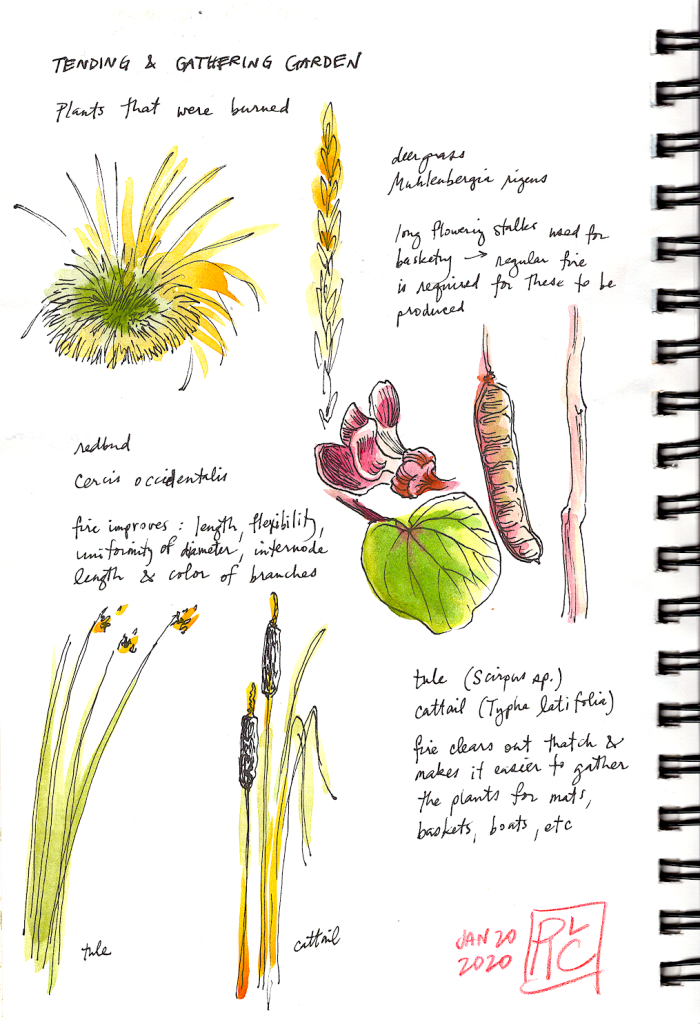 TENDING & GATHERING GARDEN
Plants that were burned
deergrass
Muhlenbergia rigens
long flowering stalks used for
basketry → regular fire
is required for these to be
produced
redbud
cercis occidentalis
fire improves : length, flexibility,
uniformity of diameter, internode
length & color of branches
tule (Scirpus sp.)
cattail (Typha latifolia)
fire clears out thatch &
makes it easier to gather
the plants for mats,
baskets, boats, etc
tule
cattail
JAN 20
2020